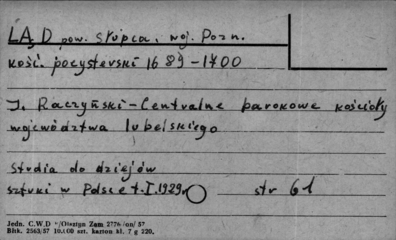 LĄD pow. Słupca, woj. Pozn.
kość. pocysterski 1689-1700
J. Raczyński-Centralne barokowe kościoły
województwa lubelskiego
Studia do dziejów
sztuki w Polsce t.I.1929, str 61
Jedn. C.W.D Olsztyn Zam 2776 /on/ 57
Bhk. 2563/57 10.000 szt. karton kl. 7 g 220.